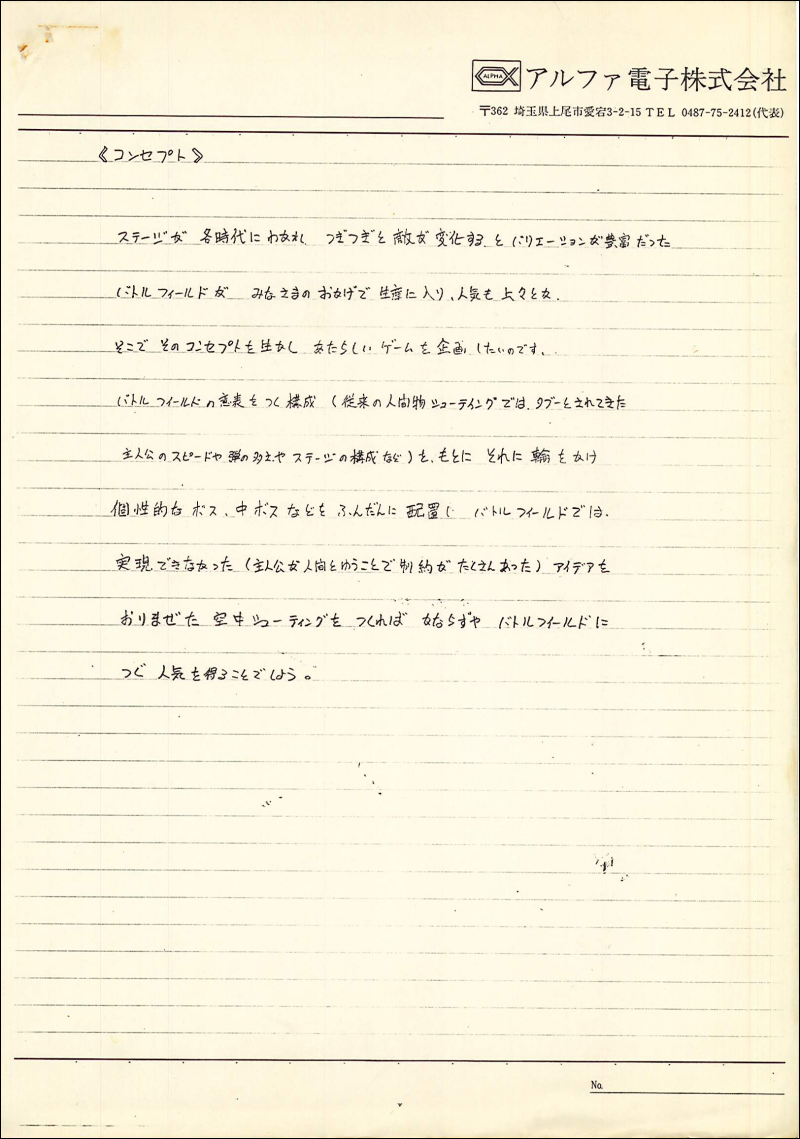 ALPHA アルファ電子株式会社
〒362 埼玉県上尾市愛宕3-2-15 TEL 0487-75-2412(代表)
《コンセプト》
ステージが 各時代にわかれ、つぎつぎと 敵が 変化する、と バリエーションが豊富だった
バトルフィールドが みなさまの おかげで 生産に入り、人気も 上々とか.
そこで そのコンセプトを生かし あたらしい ゲームを 企画 したいのです、
バトルフィールドの意表をつく構成 (従来の人間物シューティングでは、タブーとされてきた
主人公のスピードや 弾の多さや ステージの構成など)を、もとに それに 輪をかけ
個性的な ボス、中ボスなどを ふんだんに 配置し バトルフィールドでは.
実現できなかった (主人公が人間とゆうことで 制約が たくさんあった) アイデアを
おりまぜた 空中シューティングを つくれば かならずや バトルフィールドに
つぐ 人気を得ることでしょう。
No.